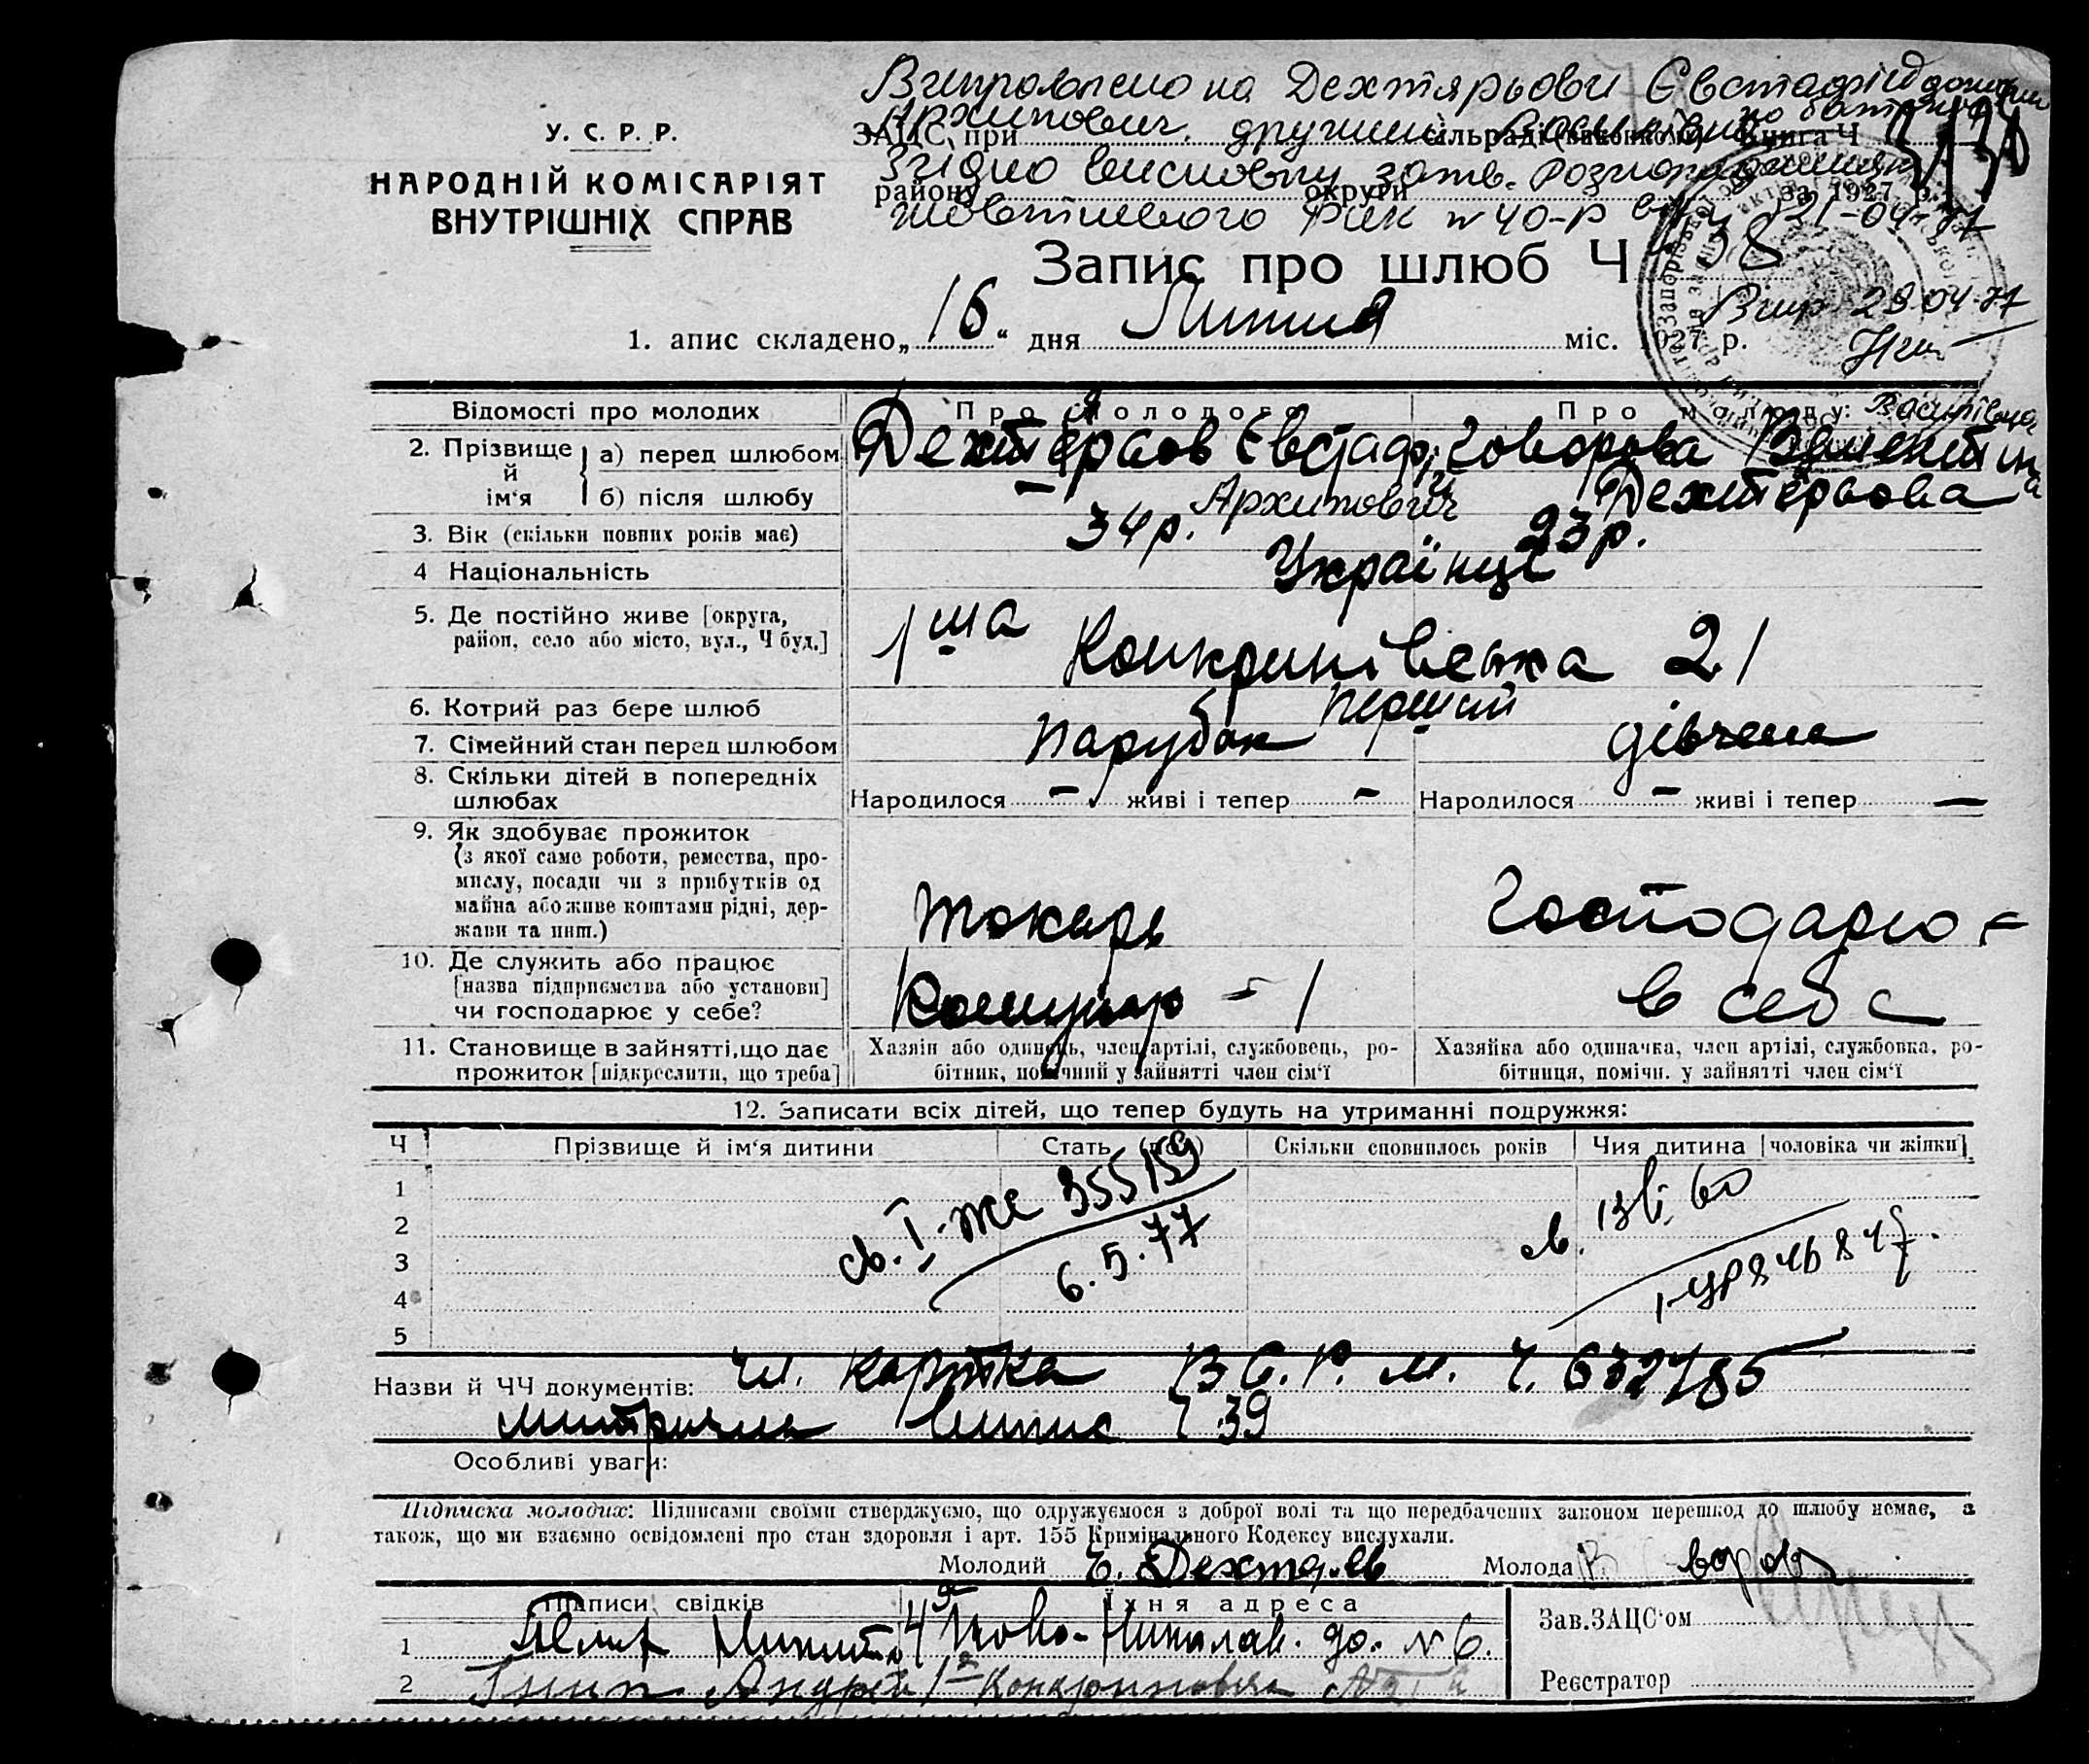 Виправлено на Дехтярьови Євстафій
Архипович, дружині по батькові
У. С. Р. Р.
ЗАЦС при сільраді (виконкомі) Книга Ч
НАРОДНІЙ КОМІСАРІЯТ
ВНУТРІШНІХ СПРАВ
Згідно висновку затв. розпорядженням
району округи за 1927 р.
Жовтневого РВК № 40-р від 21-04-77
Запис про шлюб Ч 38
Випр 28.04.77
1. апис складено „16“ дня Липня міс. 1927 р.
Відомості про молодих
Про молодого
Про молоду: Василівна
2. Прізвище й ім‘я
а) перед шлюбом
Дехтерьов Євстафій
Говорова Валентина
б) після шлюбу
—
Архипович
Дехтерьова
3. Вік (скільки повних років має)
34 р.
23 р.
4 Національність
Українці
5. Де постійно живе [округа,
район, село або місто, вул., Ч буд.]
1ша Конкринівська 21
6. Котрий раз бере шлюб
перший
7. Сімейний стан перед шлюбом
парубок
дівчина
8. Скільки дітей в попередніх
шлюбах
Народилося — живі і тепер —
Народилося — живі і тепер —
9. Як здобуває прожиток
(з якої саме роботи, ремества, про-
мислу, посади чи з прибутків од
майна або живе коштами рідні, дер-
жави та инш.)
токарь
Господарю-
10. Де служить або працює
[назва підприємства або установи]
чи господарює у себе?
Комунар - 1
в себе
11. Становище в зайнятті, що дає
прожиток [підкреслити, що треба]
Хазяін або одинець, член артілі, службовець, ро-
бітник, помічний у зайнятті член сім‘ї
Хазяйка або одиначка, член артілі, службовка, ро-
бітниця, помічн. у зайнятті член сім‘ї
12. Записати всіх дітей, що тепер будуть на утриманні подружжя:
Ч
Прізвище й ім‘я дитини
Стать
Скільки сповнилось років
Чия дитина [чоловіка чи жінки]
1
2
3
4
5
св. І-ЖС 355159
6.5.77
Назви й ЧЧ документів: чл. картка В.С.Р.М. Ч. 632785
метрична випис Ч 39
Особливі уваги:
Підписка молодих: Підписами своїми стверджуємо, що одружуємося з доброї волі та що передбачених законом перешкод до шлюбу немає, а
також, що ми взаємно освідомлені про стан здоровля і арт. 155 Кримінального Кодексу вислухали.
Молодий Е. Дехтярев
Молода
Підписи свідків
Їхня адреса
Зав.ЗАЦС‘ом
1 Микита 4я Ново-Николав. до. № 6.
2 Андрей 1а
Реєстратор